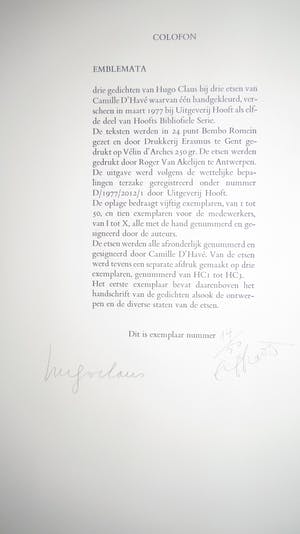 COLOFON
EMBLEMATA
drie gedichten van Hugo Claus bij drie etsen van
Camille D'Havé waarvan één handgekleurd, ver-
scheen in maart 1977 bij Uitgeverij Hooft als elf-
de deel van Hoofts Bibliofiele Serie.
De teksten werden in 24 punt Bembo Romein
gezet en door Drukkerij Erasmus te Gent ge-
drukt op Vélin d'Arches 250 gr. De etsen werden
gedrukt door Roger Van Akelijen te Antwerpen.
De uitgave werd volgens de wettelijke bepa-
lingen terzake geregistreerd onder nummer
D/1977/2012/1 door Uitgeverij Hooft.
De oplage bedraagt vijftig exemplaren, van 1 tot
50, en tien exemplaren voor de medewerkers,
van I tot X, alle met de hand genummerd en ge-
signeerd door de auteurs.
De etsen werden alle afzonderlijk genummerd en
gesigneerd door Camille D'Havé. Van de etsen
werd tevens een separate afdruk gemaakt op drie
exemplaren, genummerd van HC1 tot HC3.
Het eerste exemplaar bevat daarenboven het
handschrift van de gedichten alsook de ontwer-
pen en de diverse staten van de etsen.
Dit is exemplaar nummer
hugo claus